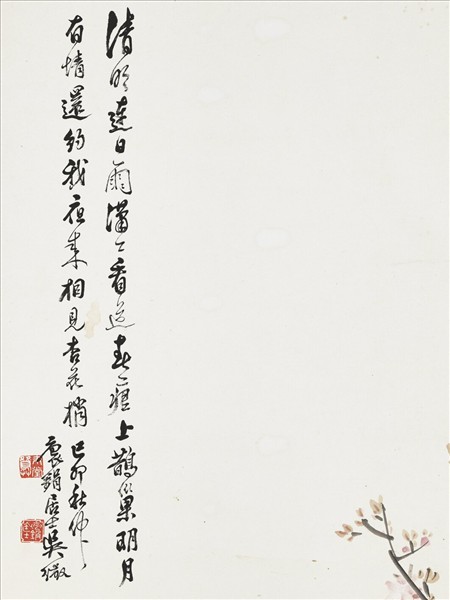 清明連日雨瀟々看送春痕上鵲巢明月
有情還約我夜來相見杏花梢
己卯秋仲
袌鋗居士吳徵